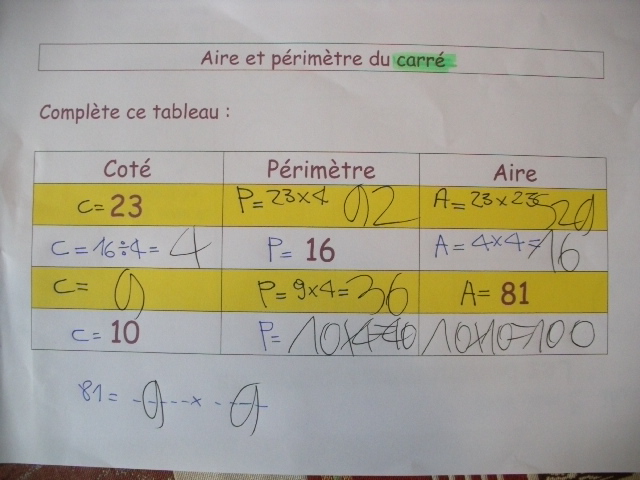 Aire et périmètre du carré
Complète ce tableau :
Coté Périmètre Aire
C= 23 P= 23x4 92 A= 23x23= 529
C= 16÷4= 4 P= 16 A= 4x4= 16
C= 9 P= 9x4= 36 A= 81
C= 10 P= 10x4=40 10x10=100
81= 9 x 9